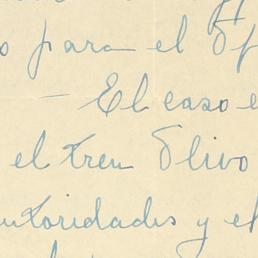 o para el Op
— El caso e
el tren Olivo
utoridades y el